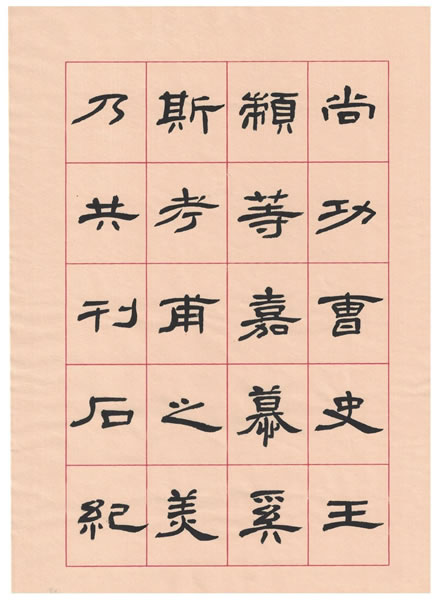 尚功曹史王
顓等嘉慕奚
斯考甫之美
乃共刊石紀